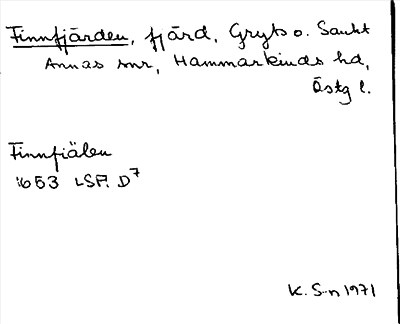 Finnfjärden, fjärd, Gryts o. Sankt
Annas snr, Hammarkinds hd,
Östg l.
Finnfiälen
1653 LSA D7
K. S-n 1971